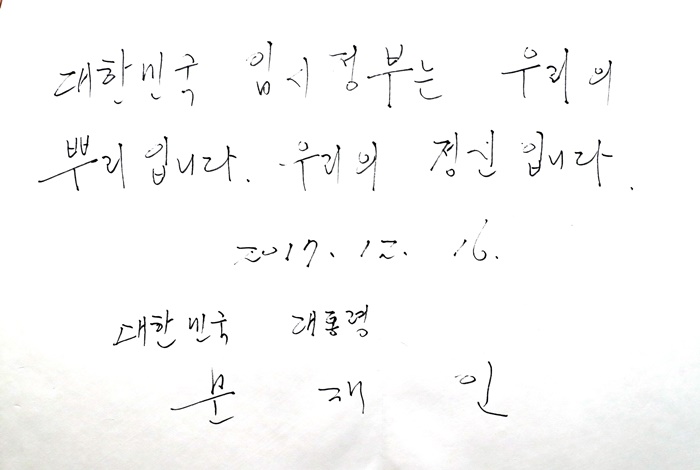 대한민국 임시정부는 우리의
뿌리입니다. 우리의 정신입니다.
2017. 12. 16.
대한민국 대통령
문 재 인